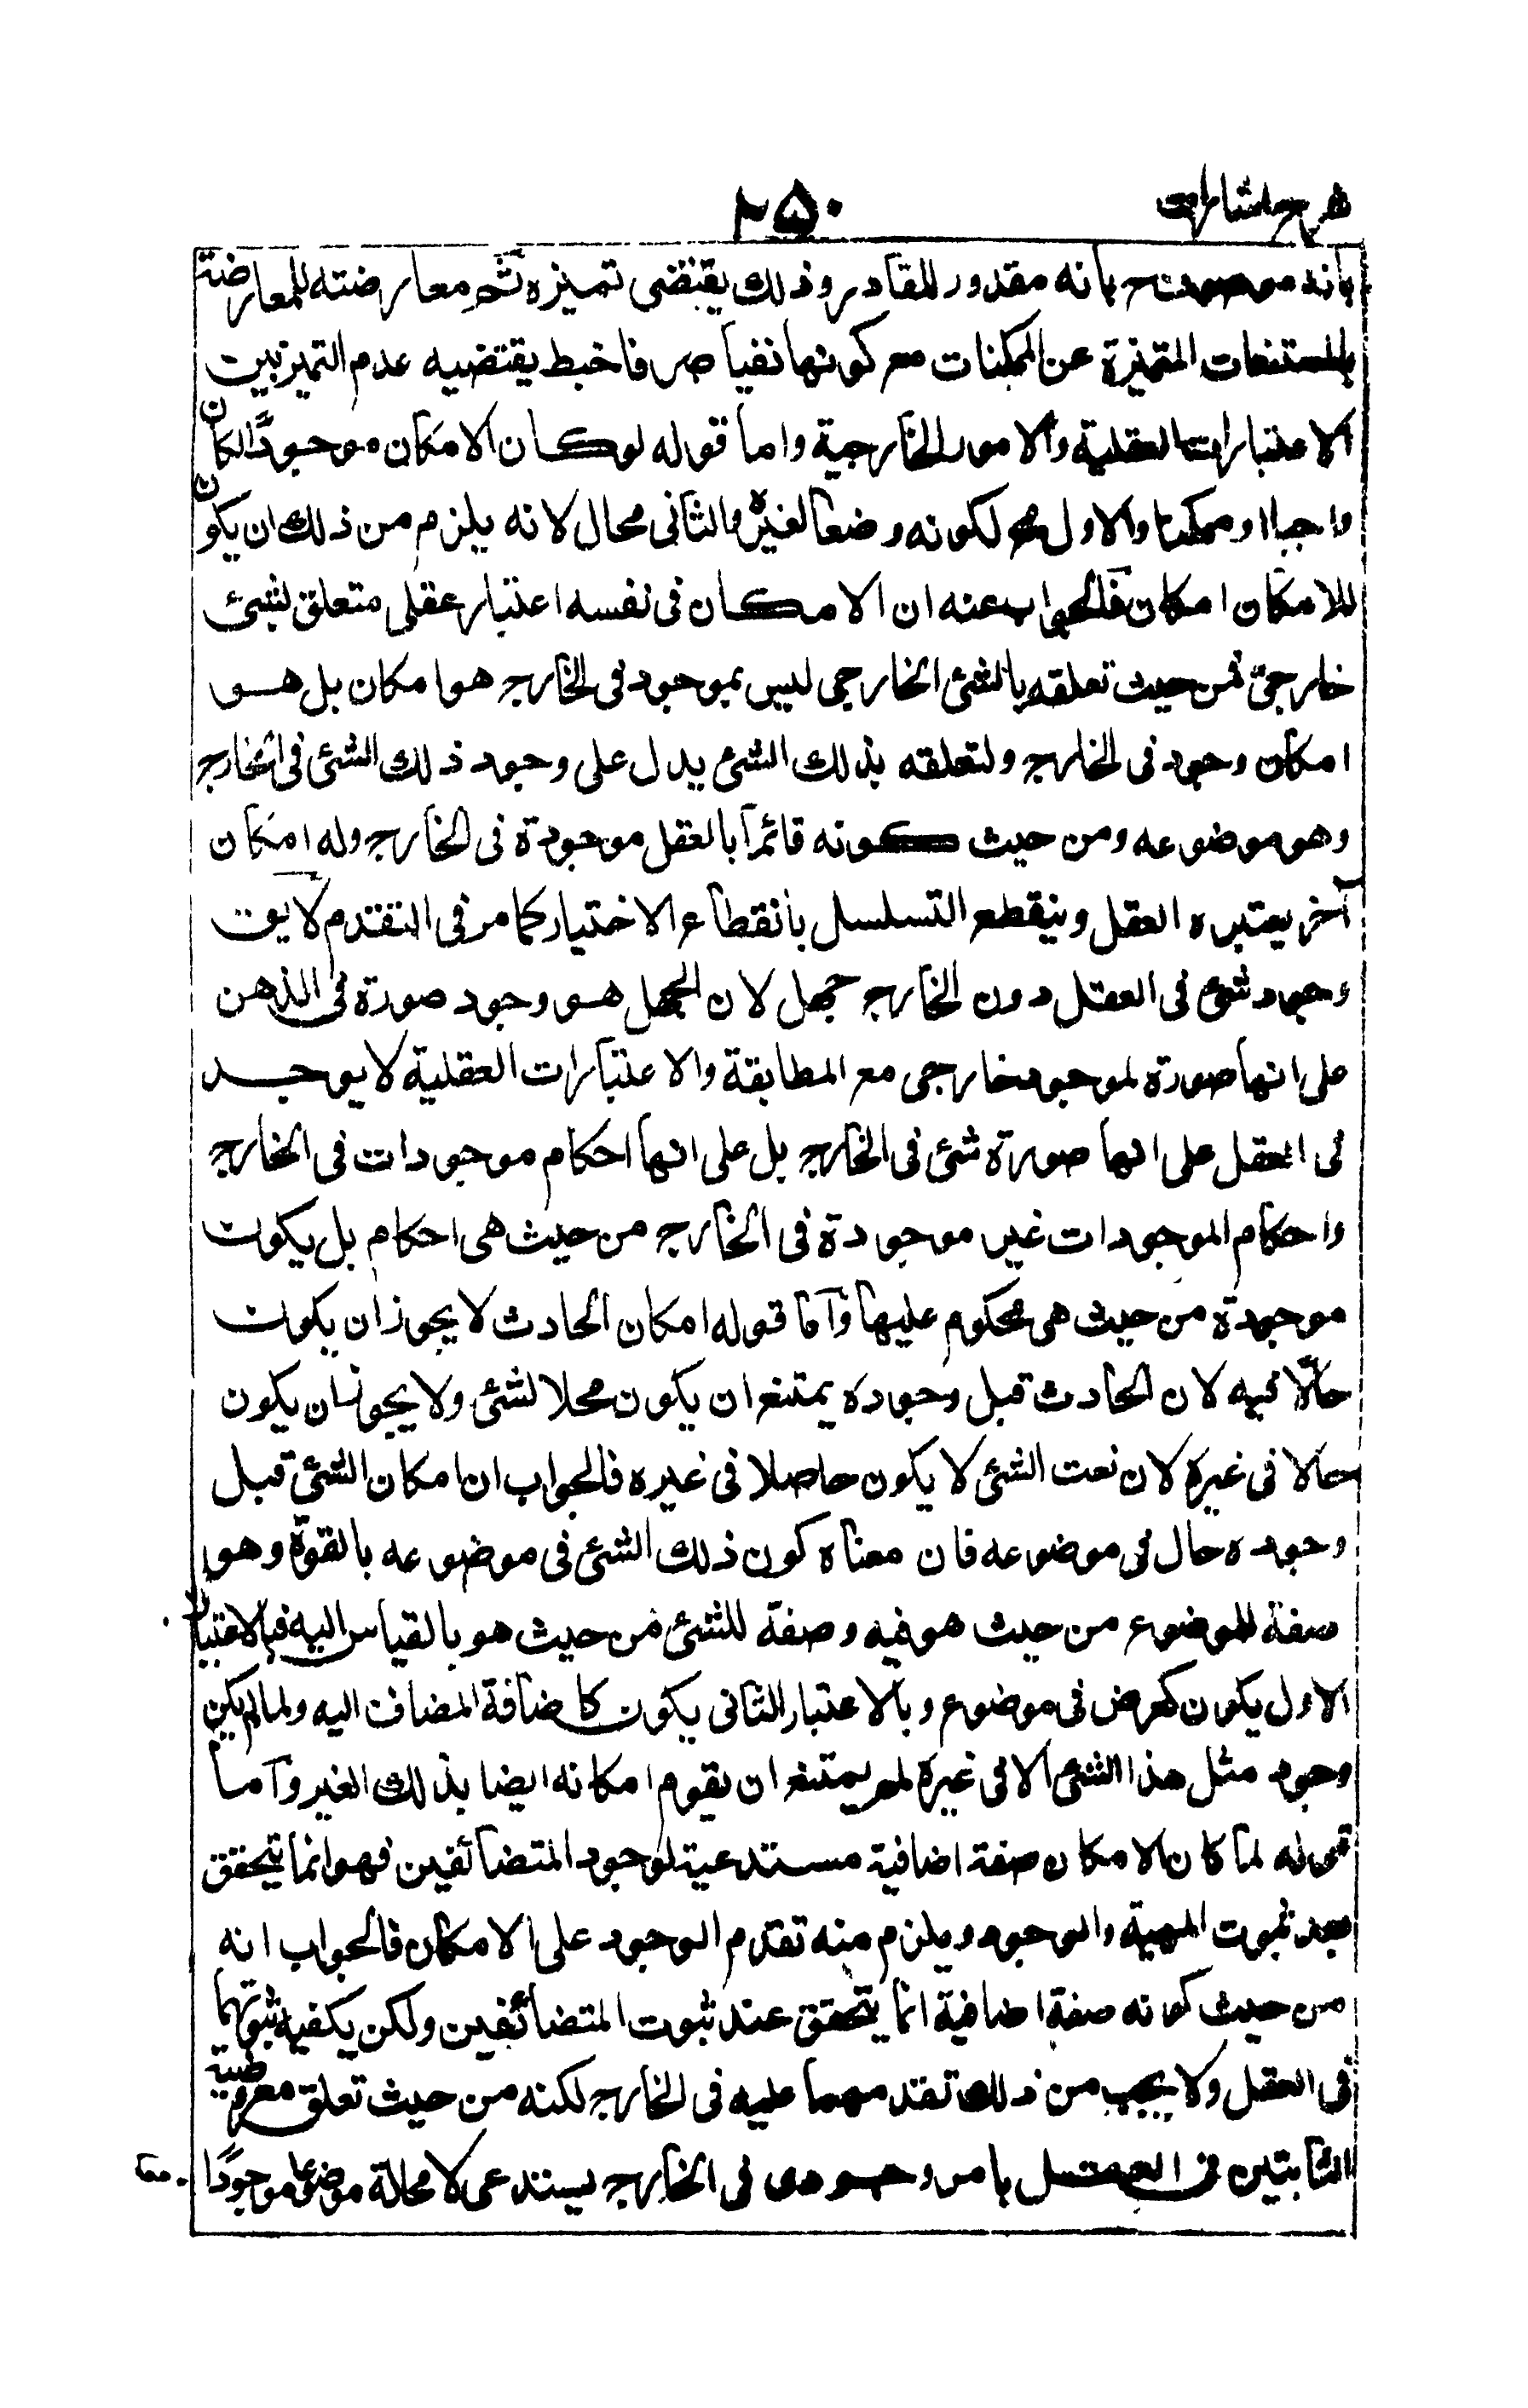 شرح اشارات
۲۵۰
بانه موصوف بانه مقدور للقادر وذلك يقتضى تميزه ثم معارضته للمعارضة
بالممتنعات المتميزة عن الممكنات مع كونها نفيا صرفا خبط يقتضيه عدم التميز بين
الاعتبارات العقلية والامور الخارجية واما قوله لو كان الامكان موجودًا لكان
واجبا او ممكنا والاول مح لكونه وضعا لغيره والثانى محال لانه يلزم من ذلك ان يكون
للامكان امكان فالجواب عنه ان الامكان فى نفسه اعتبار عقلى متعلق لشيئ
خارجى فمن حيث تعلقه بالشئ الخارجى ليس بموجود فى الخارج هو امكان بل هو
امكان وجود فى الخارج ولتعلقه بذلك الشئ يدل على وجود ذلك الشئ فى الخارج
وهو موضوعه ومن حيث كونه قائما بالعقل موجودة فى الخارج وله امكان
آخر يعتبره العقل وينقطع التسلسل بانقطاع الاختيار كما مر فى التقدم لايق
وجود شئ فى العقل دون الخارج جهل لان الجهل هو وجود صورة فى الذهن
على انها صورة لموجود خارجى مع المطابقة والاعتبارات العقلية لا يوجد
فى العقل على انها صورة شئ فى الخارج بل على انها احكام موجودات فى الخارج
واحكام الموجودات غير موجودة فى الخارج من حيث هى احكام بل يكون
موجودة من حيث هى محكوم عليها وآما قوله امكان الحادث لا يجوز ان يكون
حالّا فيه لان الحادث قبل وجوده يمتنع ان يكون محلا لشئ ولا يجوز ان يكون
حالا فى غيره لان نعت الشئ لا يكون حاصلا فى غيره فالجواب ان امكان الشئ قبل
وجوده حال فى موضوعه فان معناه كون ذلك الشئ فى موضوعه بالقوة وهو
صفة للموضوع من حيث هو فيه وصفة للشئ من حيث هو بالقياس اليه فبالاعتبار
الاول يكون كعرض فى موضوع وبالاعتبار الثانى يكون كاضافة المضاف اليه ولما لم يكن
وجود مثل هذا الشئ الا فى غيره لم يمتنع ان يقوم امكانه ايضا بذلك الغير وآما
قوله لما كان الامكان صفة اضافية مستدعية لوجود المتضائفين فهو انما يتحقق
بعد ثبوت المهية والوجود ويلزم منه تقدم الوجود على الامكان فالجواب انه
من حيث كونه صفة اضافية انما يتحقق عند ثبوت المتضائفين ولكن يكفيه ثبوتهما
فى العقل ولا يجب من ذلك تقدمهما عليه فى الخارج لكنه من حيث تعلق معروضيه
الثابتين فى العقل بامر وجودى فى الخارج يستدعى لا محالة موضوعا موجودًا